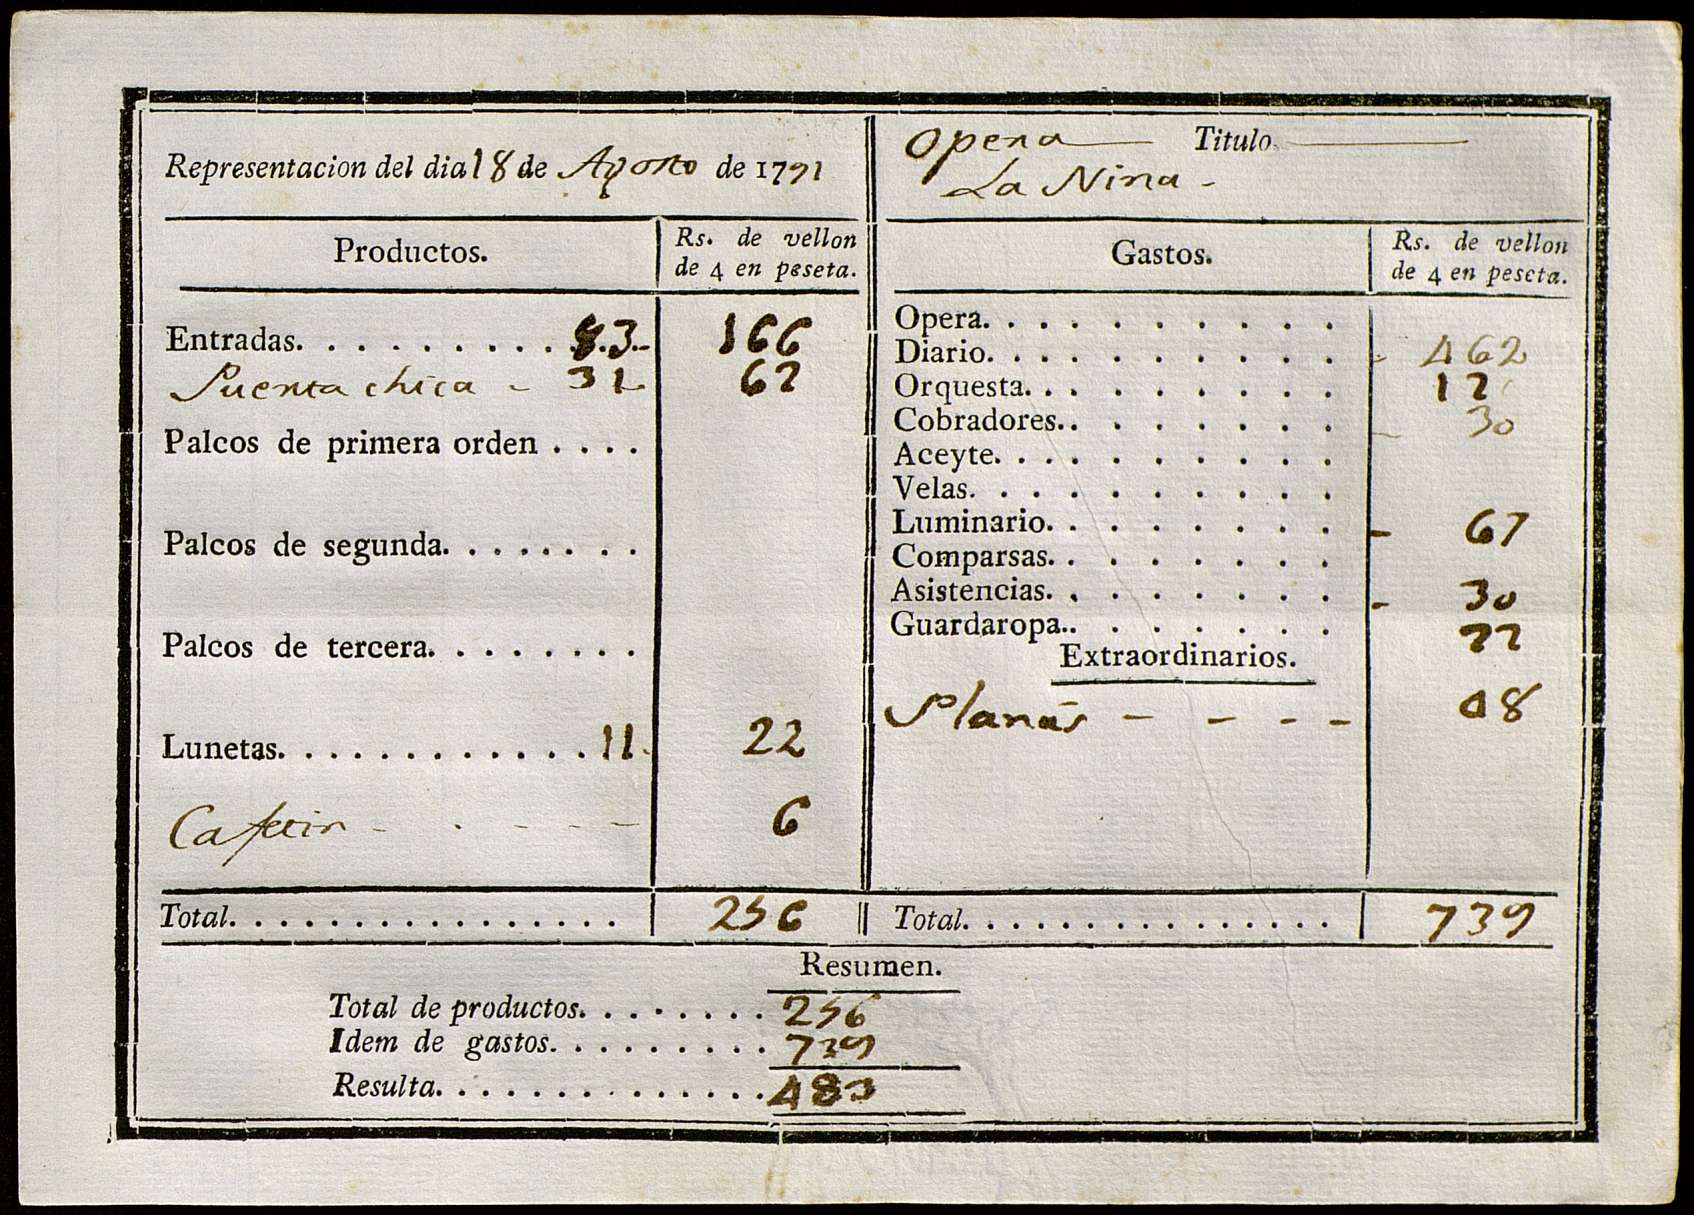 Representacion del dia 18 de Agosto de 1791
Productos. Rs. de vellon
de 4 en peseta.
Entradas. . . . . . . . . . 83.- 166
Puerta chica - 31 62
Palcos de primera orden . . . .
Palcos de segunda. . . . . . . .
Palcos de tercera. . . . . . . . .
Lunetas. . . . . . . . . . . . . 11. 22
Cafetin - . - - - 6
Total. . . . . . . . . . . . . . . . . 256
Opera Titulo.
La Nina -
Gastos. Rs. de vellon
de 4 en peseta.
Opera. . . . . . . . . .
Diario. . . . . . . . . . - 462
Orquesta. . . . . . . . . 120
Cobradores.. . . . . . . - 30
Aceyte. . . . . . . . . .
Velas. . . . . . . . . .
Luminario. . . . . . . . - 67
Comparsas. . . . . . . .
Asistencias. . . . . . . . - 30
Guardaropa.. . . . . . . 22
Extraordinarios.
Planas - - - - 08
Total. . . . . . . . . . . . . . . . 739
Resumen.
Total de productos. . . . . . . . 256
Idem de gastos. . . . . . . . . . 739
Resulta. . . . . . . . . . . . . . 483